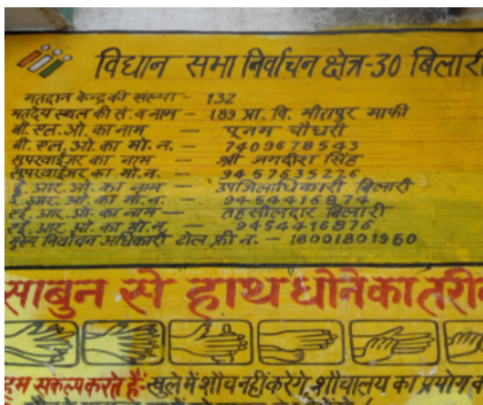 विधान सभा निर्वाचन क्षेत्र-30 बिलारी
मतदान केन्द्र की संख्या - 132
मतदेय स्थल की सं. व नाम - 189 प्रा. वि. मीरापुर माफी
बी. एल. ओ. का नाम - पूनम चौधरी
बी. एल. ओ. का मो. न. - 7409678543
सुपरवाईजर का नाम - श्री जगदीश सिंह
सुपरवाईजर का मो. न. - 9457635226
ई. आर. ओ. का नाम - उपजिलाधिकारी बिलारी
ई. आर. ओ. का मो. न. - 9454416874
एई. आर. ओ. का नाम - तहसीलदार बिलारी
एई. आर. ओ. का मो. न. - 9454416876
मुख्य निर्वाचन अधिकारी टोल फ्री न. - 18001801950
साबुन से हाथ धोने का तरी
हम संकल्प करते हैं: खुले में शौच नहीं करेंगे, शौचालय का प्रयोग